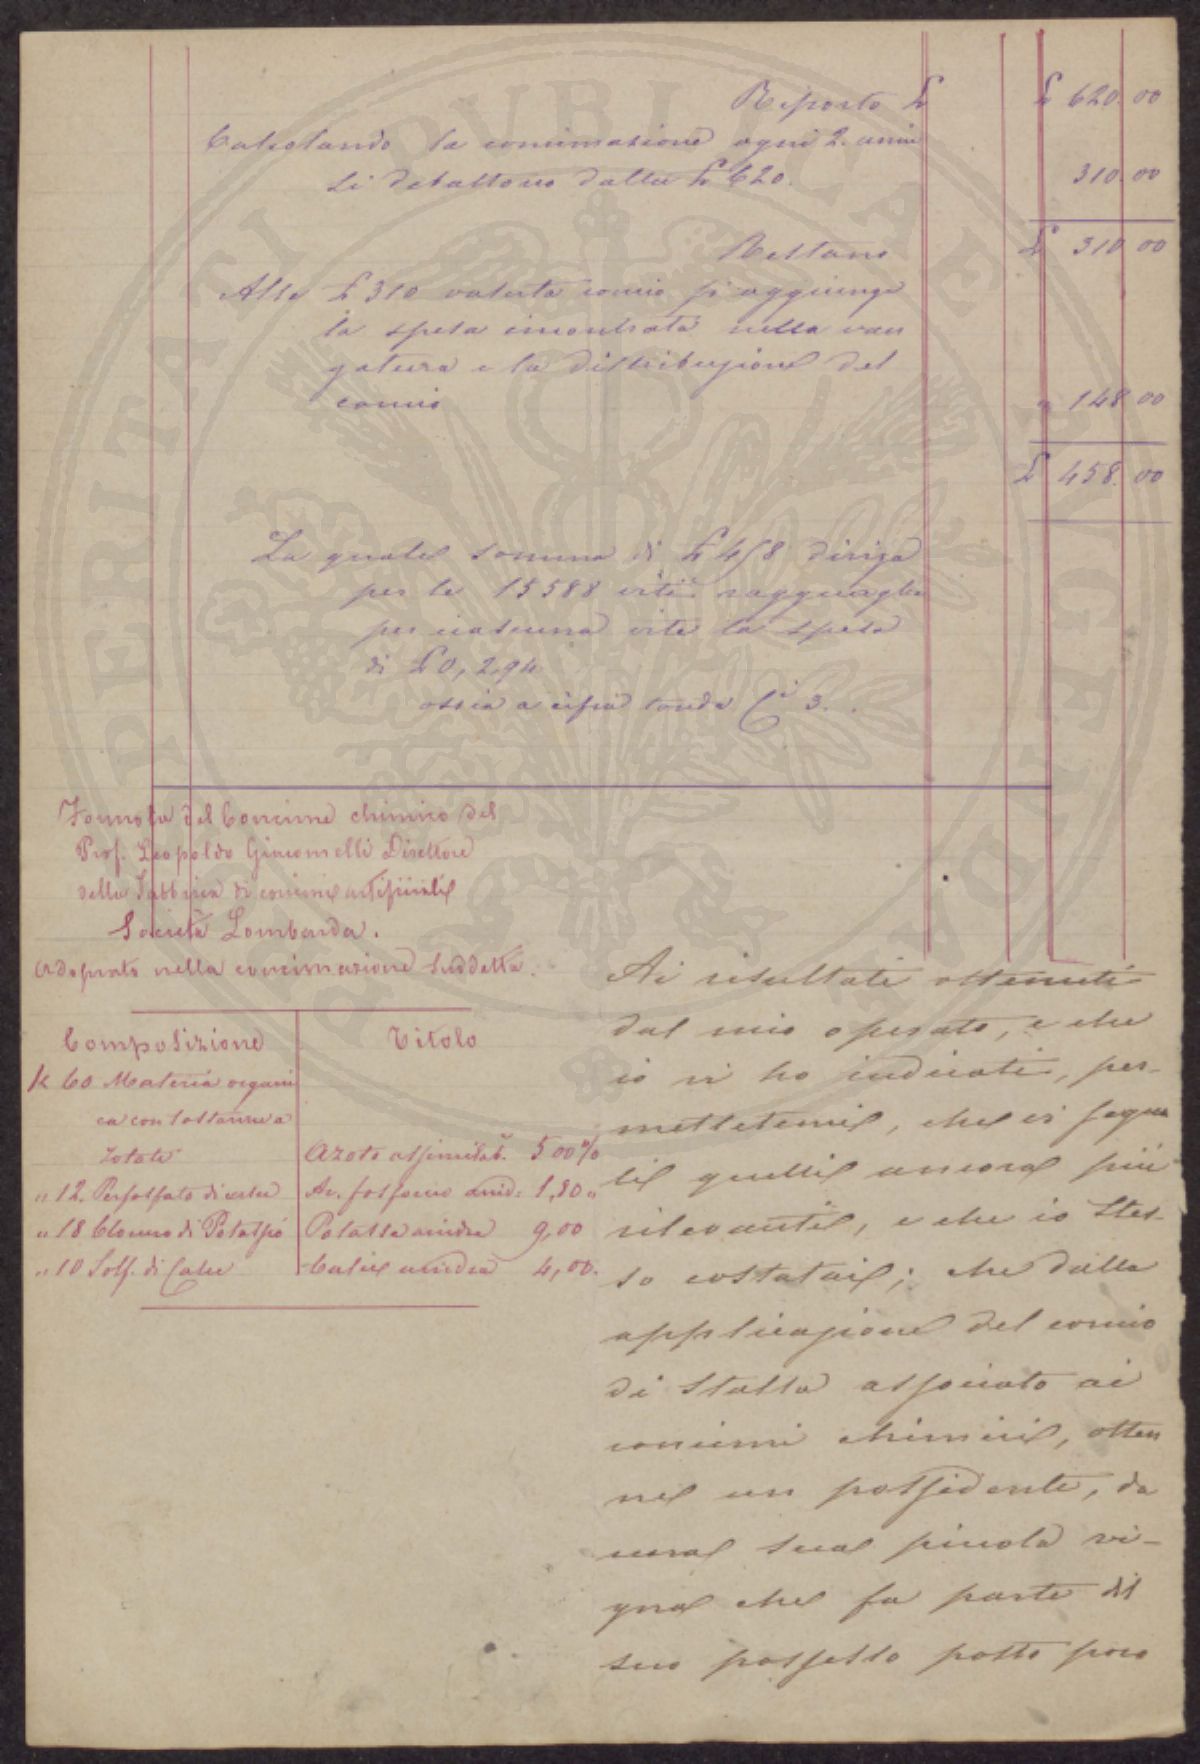 Riporto £ £ 620.00
Calcolando la concimazione ogni 2. anni
si debattono dalla £ 620. 310.00
Restano £ 310.00
Alle £ 310 valuta concio si aggiunge
la spesa incontrata nella van
gatura e la distribuzione del
concio " 148.00
£ 458.00
La quale somma di £ 458 divisa
per le 15588 viti ragguaglia
per ciascuna vite la spesa
di £ 0,2,94
ossia a cifra tonda Ci 3.
Formola del Concime chimico del
Prof. Leopoldo Giacomelli Direttore
della Fabbrica di concimi artificiali
Società Lombarda.
adoprato nella concimazione suddetta.
Composizione Titolo
K 60 Materia organi
ca con sostanze a
zotate Azoto assimilab. 5 00%
" 12. Perfosfato di calce Ac. fosforico anid: 1,80 "
" 18 Cloruro di Potassio Potassa anidra 9,00
" 10 Solf. di Calce Calce anidra 4,00.
Ai risultati ottenuti
dal mio operato, e che
io vi ho indicati, per-
mettetemi, che vi segna
li quelli ancora più
rilevanti, e che io stes-
so costatai; che dalla
applicazione del concio
di stalla associato ai
concimi chimici, otten
ne un possidente, da
una sua piccola vi-
gna che fa parte del
suo possesso posto poco